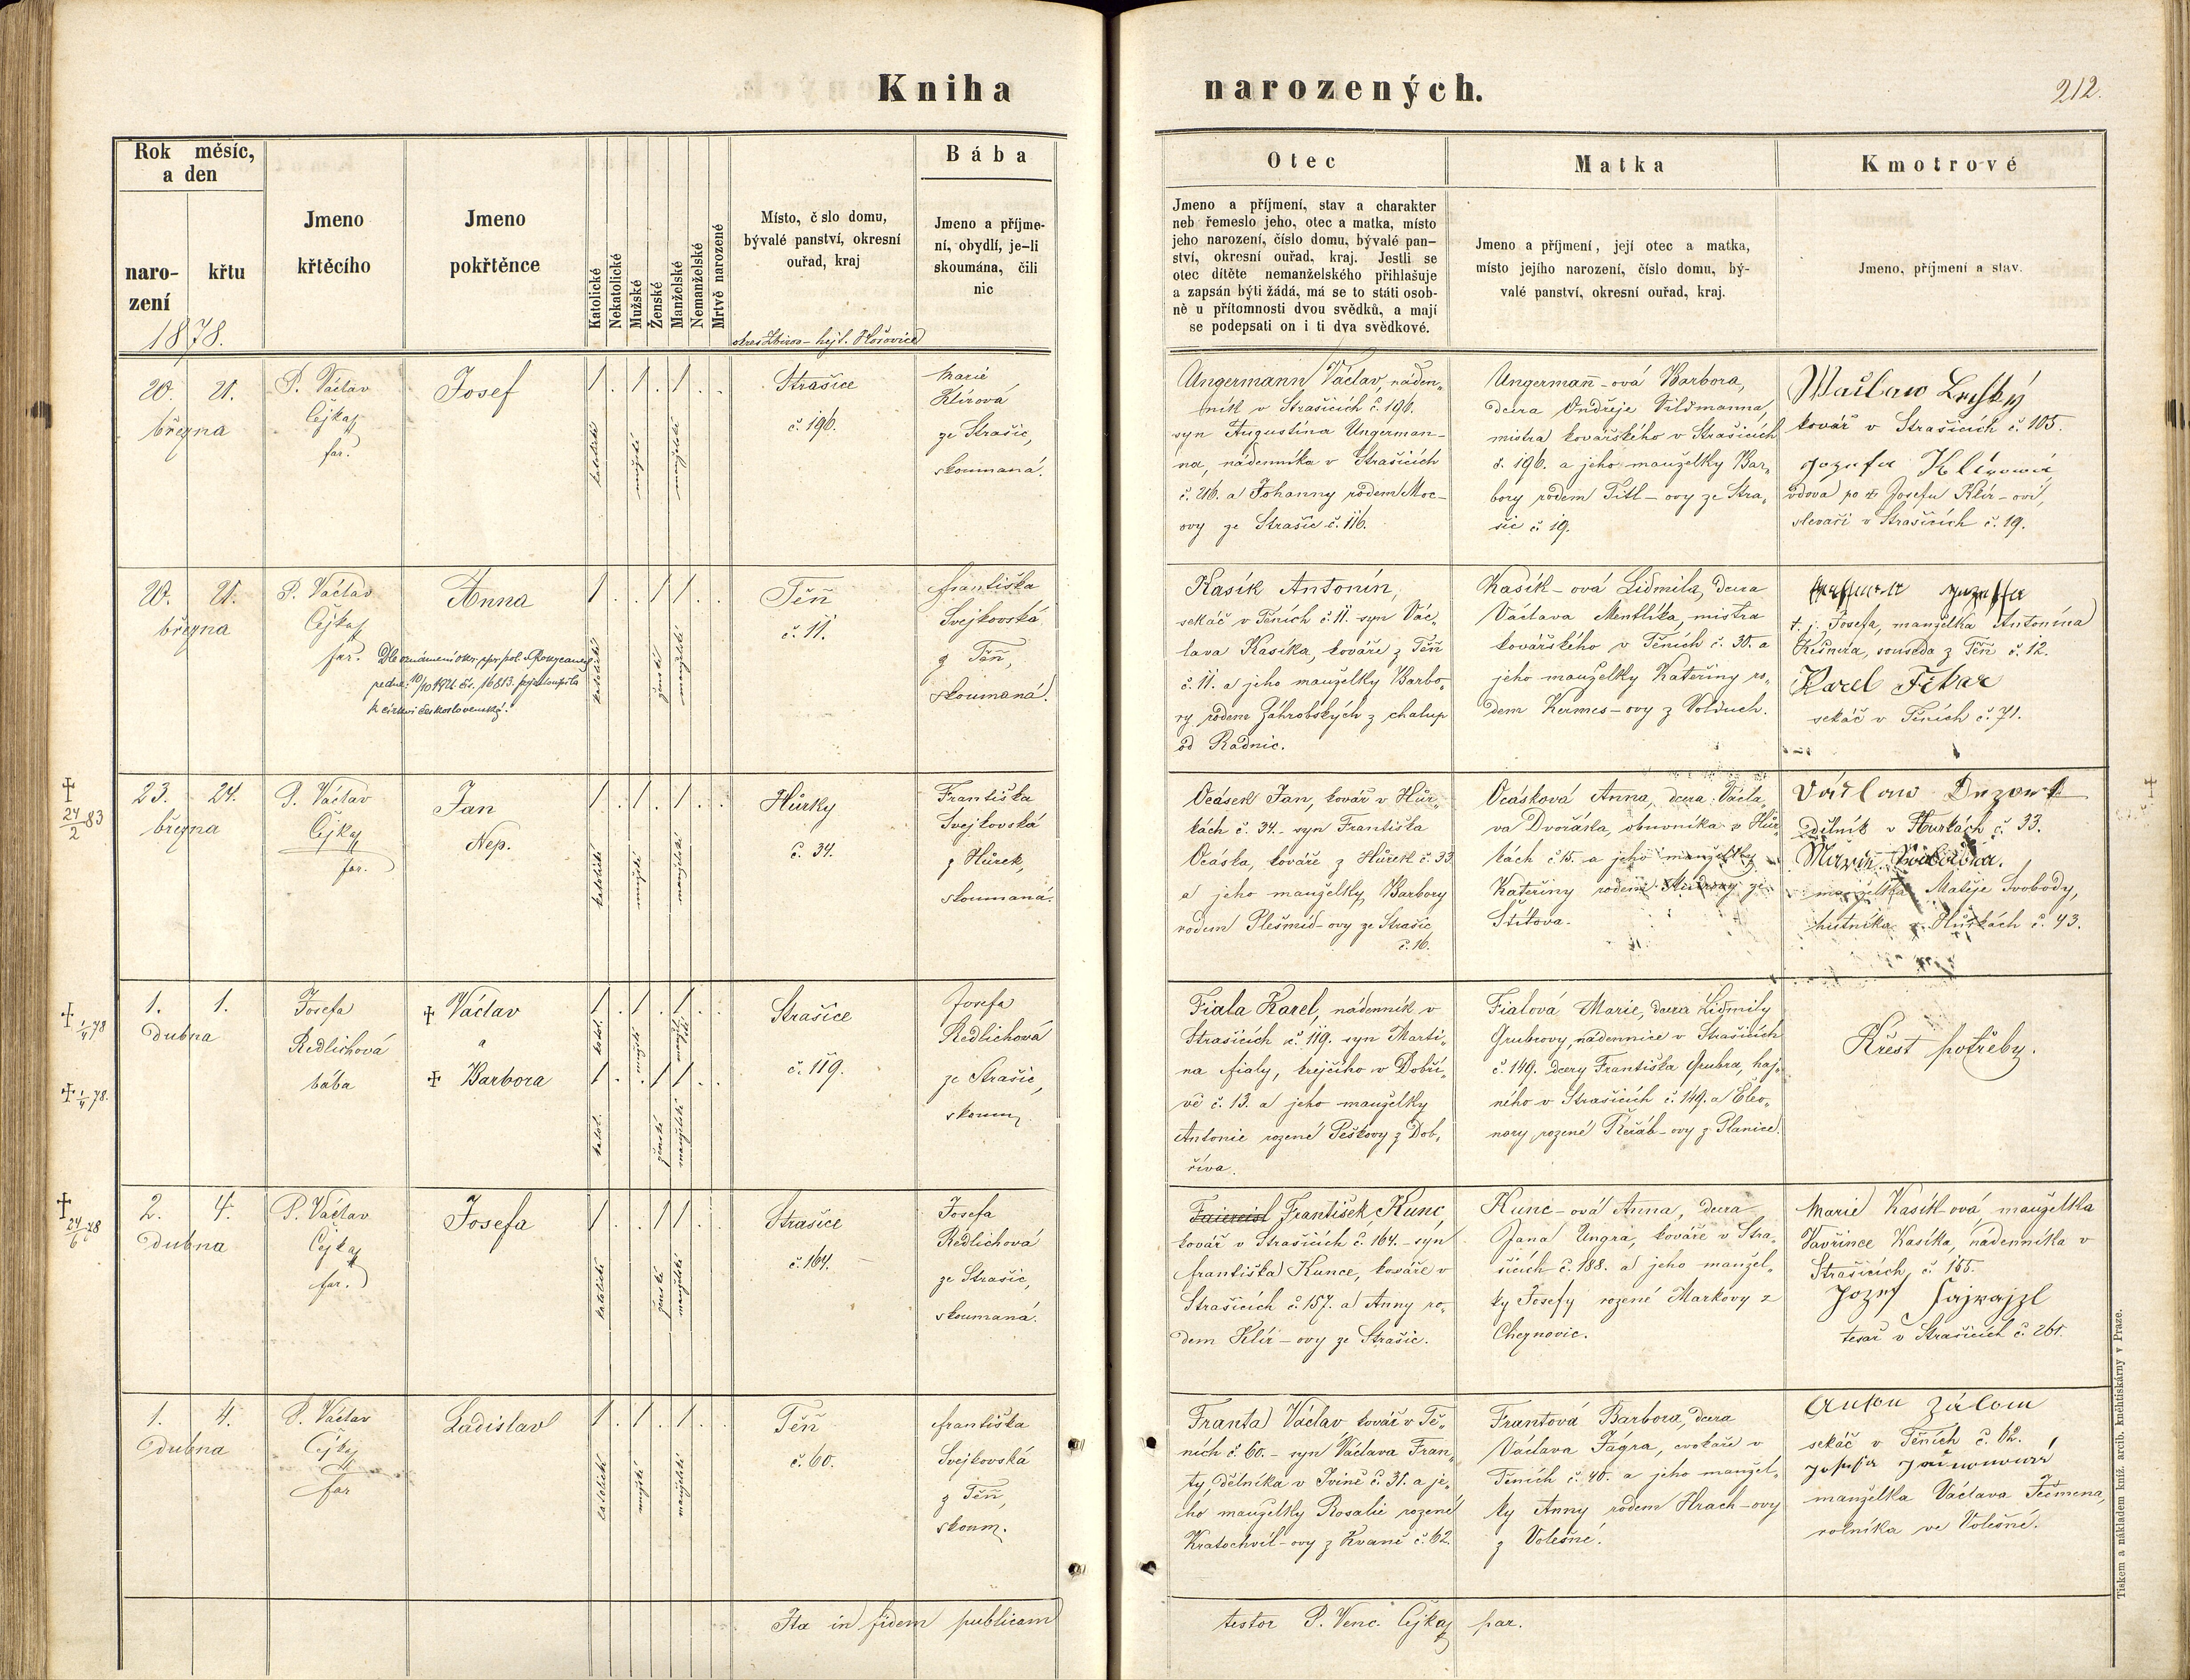 Kniha narozených.
212.
Rok měsíc,
a den
naro-
zení
křtu
1878.
Jmeno
křtěcího
Jmeno
pokřtěnce
Katolické
Nekatolické
Mužské
Ženské
Manželské
Nemanželské
Mrtvě narozené
Místo, č slo domu,
bývalé panství, okresní
ouřad, kraj
okres Zbirov - hejt. Hořovice
Bába
Jmeno a příjme-
ní, obydlí, je-li
skoumána, čili
nic
Otec
Jmeno a příjmení, stav a charakter
neb řemeslo jeho, otec a matka, místo
jeho narození, číslo domu, bývalé pan-
ství, okresní ouřad, kraj. Jestli se
otec dítěte nemanželského přihlašuje
a zapsán býti žádá, má se to státi osob-
ně u přítomnosti dvou svědků, a mají
se podepsati on i ti dva svědkové.
Matka
Jmeno a příjmení, její otec a matka,
místo jejího narození, číslo domu, bý-
valé panství, okresní ouřad, kraj.
Kmotrové
Jmeno, příjmení a stav.
20. 21.
března
P. Václav
Čejka
far.
Josef
1 . 1 . 1 . .
katolické
mužské
manželské
Strašice
č. 196.
Marie
Klírová
ze Strašic,
skoumaná.
Ungermann Václav, náden-
ník v Strašicích č. 196.
syn Augustina Ungerman-
na, nádenníka v Strašicích
č. 216. a Johanny rodem Moc-
ovy ze Strašic č. 116.
Ungermañ-ová Barbora,
dcera Ondřeje Vildmanna,
mistra kovářského v Strašicích
č. 196. a jeho manželky Bar-
bory rodem Titl-ovy ze Stra-
šic č. 19.
Kovář v Strašicích č. 105.
vdova po Josefu Klír-ovi,
slevači v Strašicích č. 19.
20. 21.
března
P. Václav
Čejka
far.
Anna
k církvi československé.
1 . . 1 1 . .
katolické
ženské
manželské
Těñ
č. 11.
Františka
Svejkovská
z Těñ,
skoumaná.
Kasík Antonín,
sekáč v Těních č. 11. syn Vác-
lava Kasíka, kováře z Těñ
č. 11. a jeho manželky Barbo-
ry rodem Záhrobských z chalup
od Radnic.
Kasík-ová Lidmila, dcera
Václava Mentlíka, mistra
kovářského v Těních č. 30. a
jeho manželky Kateřiny ro-
dem Kermes-ovy z Volduch.
t. j. Josefa, manželka Antonína
souseda z Těñ č. 12.
Karel
sekáč v Těních č. 71.
24/2 83
23. 24.
března
P. Václav
Čejka
far.
Jan
Nep.
1 . 1 . 1 . .
katolické
mužské
manželské
Hůrky
č. 34.
Františka
Svejkovská
z Hůrek,
skoumaná.
Ocásek Jan, kovář v Hůr-
kách č. 34. syn Františka
Ocáska, kováře z Hůrek č. 33
a jeho manželky Barbory
rodem Plešmíd-ovy ze Strašic
č. 16.
Ocásková Anna, dcera Václa-
va Dvořáka, obuvníka v Hůr-
kách č. 15. a jeho manželky
Kateřiny rodem ze
Štítova.
dělník v Hurkách č. 33.
manželka Matěje Svobody,
hutníka v Hůrkách č. 43.
1/4 78
1/4 78.
1. 1.
Dubna
Josefa
Redlichová
bába
Václav
a
Barbora
1 . 1 . 1 . .
1 . . 1 1 . .
katol.
ženské
manželské
Strašice
č. 119.
Josefa
Redlichová
ze Strašic,
skoum.
Fiala Karel, nádenník v
Strašicích č. 119. syn Marti-
na Fialy, krejčího v Dobří-
vě č. 13. a jeho manželky
Antonie rozené Peškovy z Dob-
říva.
Fialová Marie, dcera Lidmily
Grubrovy, nádennice v Strašicích
č. 149. dcery Františka Grubra, haj-
ného v Strašicích č. 149. a Eleo-
nory, rozené Řeřáb-ovy z Planice.
Křest potřeby.
24/6 78
2. 4.
Dubna
P. Václav
Čejka
far.
Josefa
1 . . 1 1 . .
katolické
ženské
manželské
Strašice
č. 164.
Josefa
Redlichová
ze Strašic,
skoumaná.
František Kunc
kovář v Strašicích č. 164. syn
Františka Kunce, kováře v
Strašicích č. 157. a Anny ro-
dem Klír-ovy ze Strašic.
Kunc-ová Anna, dcera
Jana Ungra, kováře v Stra-
šicích č. 188. a jeho manžel-
ky Josefy rozené Markovy z
Cheznovic.
Marie Kasík-ová manželka
Vavřince Kasíka, nádenníka v
Strašicích č. 155.
Jozef Fajrajzl
tesař v Strašicích č. 261.
1. 4.
Dubna
P. Václav
Čejka
far
Ladislav
1 . 1 . 1 . .
katolické
mužské
manželské
Těñ
č. 60.
Františka
Svejkovská
z Těñ,
skoum.
Franta Václav kovář v Tě-
ních č. 60. - syn Václava Fran-
ty, dělníka v Jvině č. 31. a je-
ho manželky Rosalie rozené
Kratochvíl-ovy z Kvaně č. 62.
Frantová Barbora, dcera
Václava Fágra, cvokaře v
Těních č. 40. a jeho manžel-
ky Anny rodem Hrach-ovy
z Volešné.
sekáč v Těních č. 62.
manželka Václava Ječmena,
rolníka ve Volešné.
Ita in fidem publicam testor P. Venc. Čejka par.
Tiskem a nákladem kníž. arcib. kněhtiskárny v Praze.